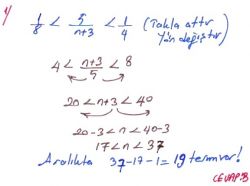 4) 1/8 < 5/n+3 < 1/4 (Takla attır
yön değiştir)
4 < n+3/5 < 8
20 < n+3 < 40
20-3 < n < 40-3
17 < n < 37
Aralıkta 37-17-1=19 terim var!
CEVAP:B